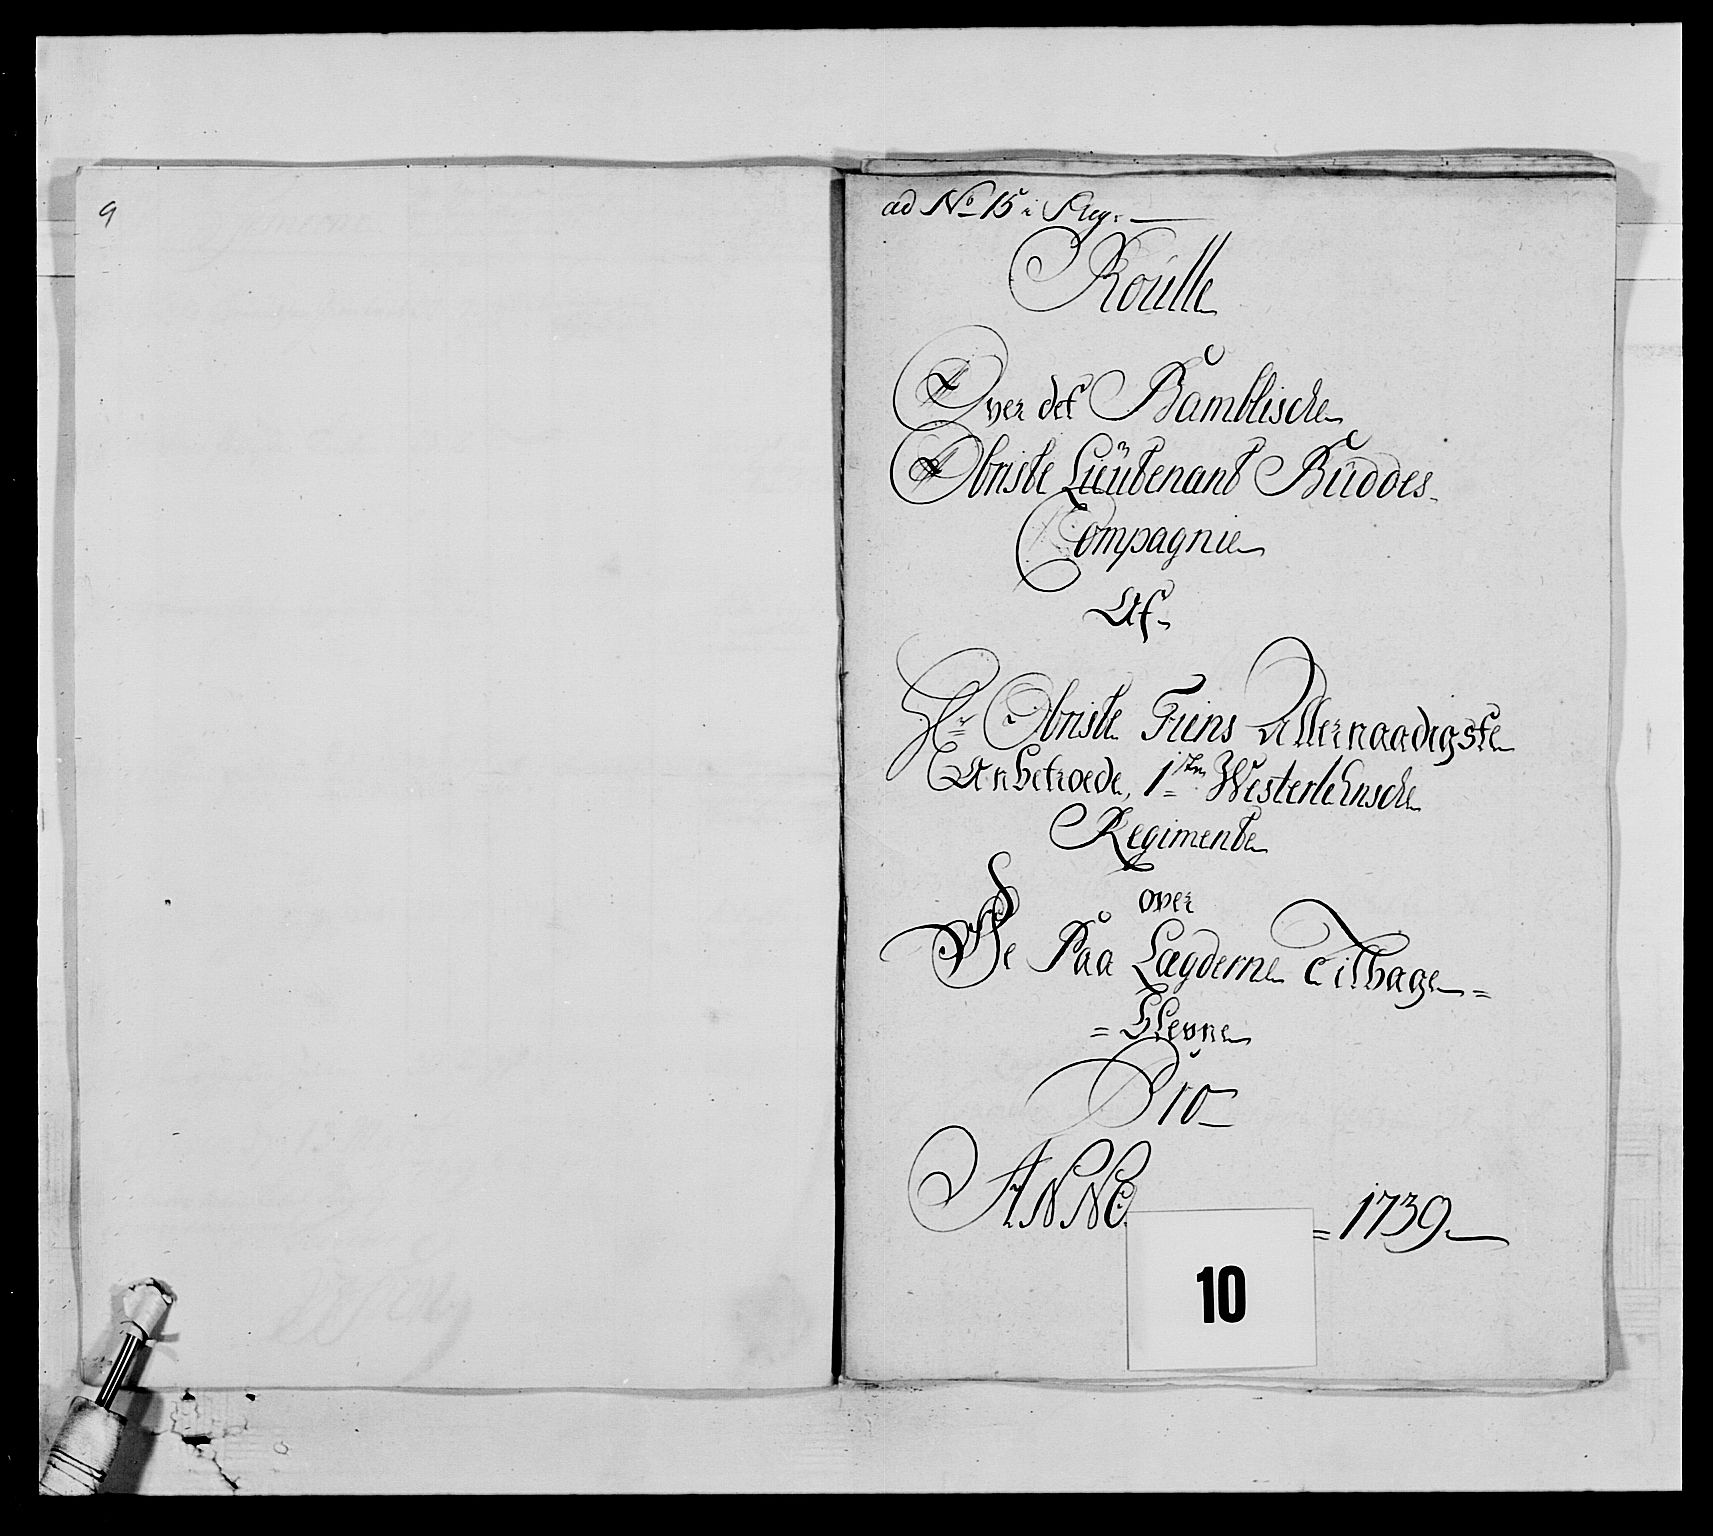 9
ad No 15 i Reg:
Roulle
Over det Bamblische
Obriste Lieütenant Buddes
Compagnie
Af
Hr Obriste Fiens Allernaadigste
Anbetroede, 1ste Westerlehnsche
Regimente
over
De Paa Lægderne Tilbage=
=blevne
Pro
ANNO = 1739
10